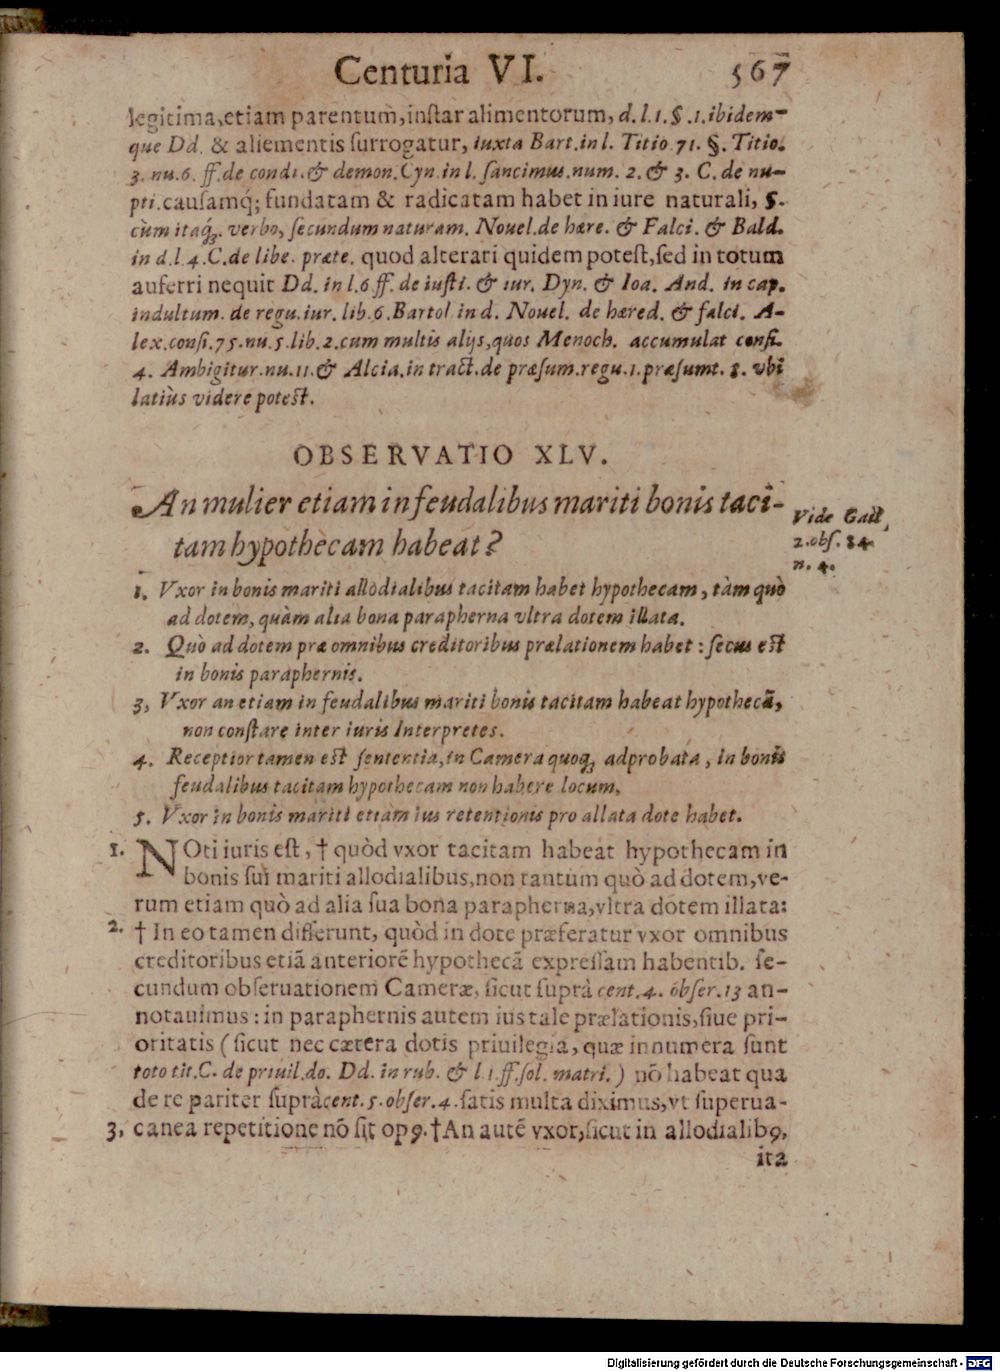 Centuria VI. 567
legitima, etiam parentum, inſtar alimentorum, d. l. 1. §. 1. ibidem-
que Dd. & aliementis ſurrogatur, iuxta Bart. in l. Titio 71. §. Titio.
3. nu. 6. ff. de condi. & demon. Cyn. in l. ſancimus. num. 2. & 3. C. de nu-
pti. cauſamq́; fundatam & radicatam habet in iure naturali, §.
cùm itaqꝫ. verbo, ſecundum naturam. Nouel. de hære. & Falci. & Bald.
in d. l. 4. C. de libe. præte. quod alterari quidem poteſt, ſed in totum
auferri nequit Dd. in l. 6. ff. de iuſti. & iur. Dyn. & Ioa. And. in cap.
indultum. de regu. iur. lib. 6. Bartol. in d. Nouel. de hæred. & falci. A-
lex. conſi. 75. nu. 5. lib. 2. cum multis alijs, quos Menoch. accumulat conſi.
4. Ambigitur. nu. 11. & Alcia. in tract. de præſum. regu. 1. præſumt. 8. vbi
latiùs videre poteſt.
OBSERVATIO XLV.
An mulier etiam in feudalibus mariti bonis taci-
tam hypothecam habeat?
Vide Gail,
2. obſ. 84.
n. 4.
1. Vxor in bonis mariti allodialibus tacitam habet hypothecam, tàm quò
ad dotem, quàm alia bona parapherna vltra dotem illata.
2. Quò ad dotem præ omnibus creditoribus prælationem habet: ſecus eſt
in bonis paraphernis.
3, Vxor an etiam in feudalibus mariti bonis tacitam habeat hypothecā,
non conſtare inter iuris Interpretes.
4. Receptior tamen eſt ſententia, in Camera quoqꝫ adprobata, in bonis
feudalibus tacitam hypothecam non habere locum.
5. Vxor in bonis mariti etiam ius retentionis pro allata dote habet.
1. NOti iuris eſt, † quòd vxor tacitam habeat hypothecam in
bonis ſui mariti allodialibus, non tantum quò ad dotem, ve-
rum etiam quò ad alia ſua bona parapherna, vltra dotem illata:
2. † In eo tamen differunt, quòd in dote præferatur vxor omnibus
creditoribus etiā anteriorē hypothecā expreſſam habentib. ſe-
cundum obſeruationem Cameræ, ſicut ſuprà cent. 4. obſer. 13 an-
notauimus: in paraphernis autem ius tale prælationis, ſiue pri-
oritatis (ſicut nec cætera dotis priuilegia, quæ innumera ſunt
toto tit. C. de priuil. do. Dd. in rub. & l. 1. ff. ſol. matri.) nō habeat qua
de re pariter ſuprà cent. 5. obſer. 4. ſatis multa diximus, vt ſuperua-
3, canea repetitione nō ſit opꝰ. † An autē vxor, ſicut in allodialibꝰ,
ita
Digitalisierung gefördert durch die Deutsche Forschungsgemeinschaft - DFG